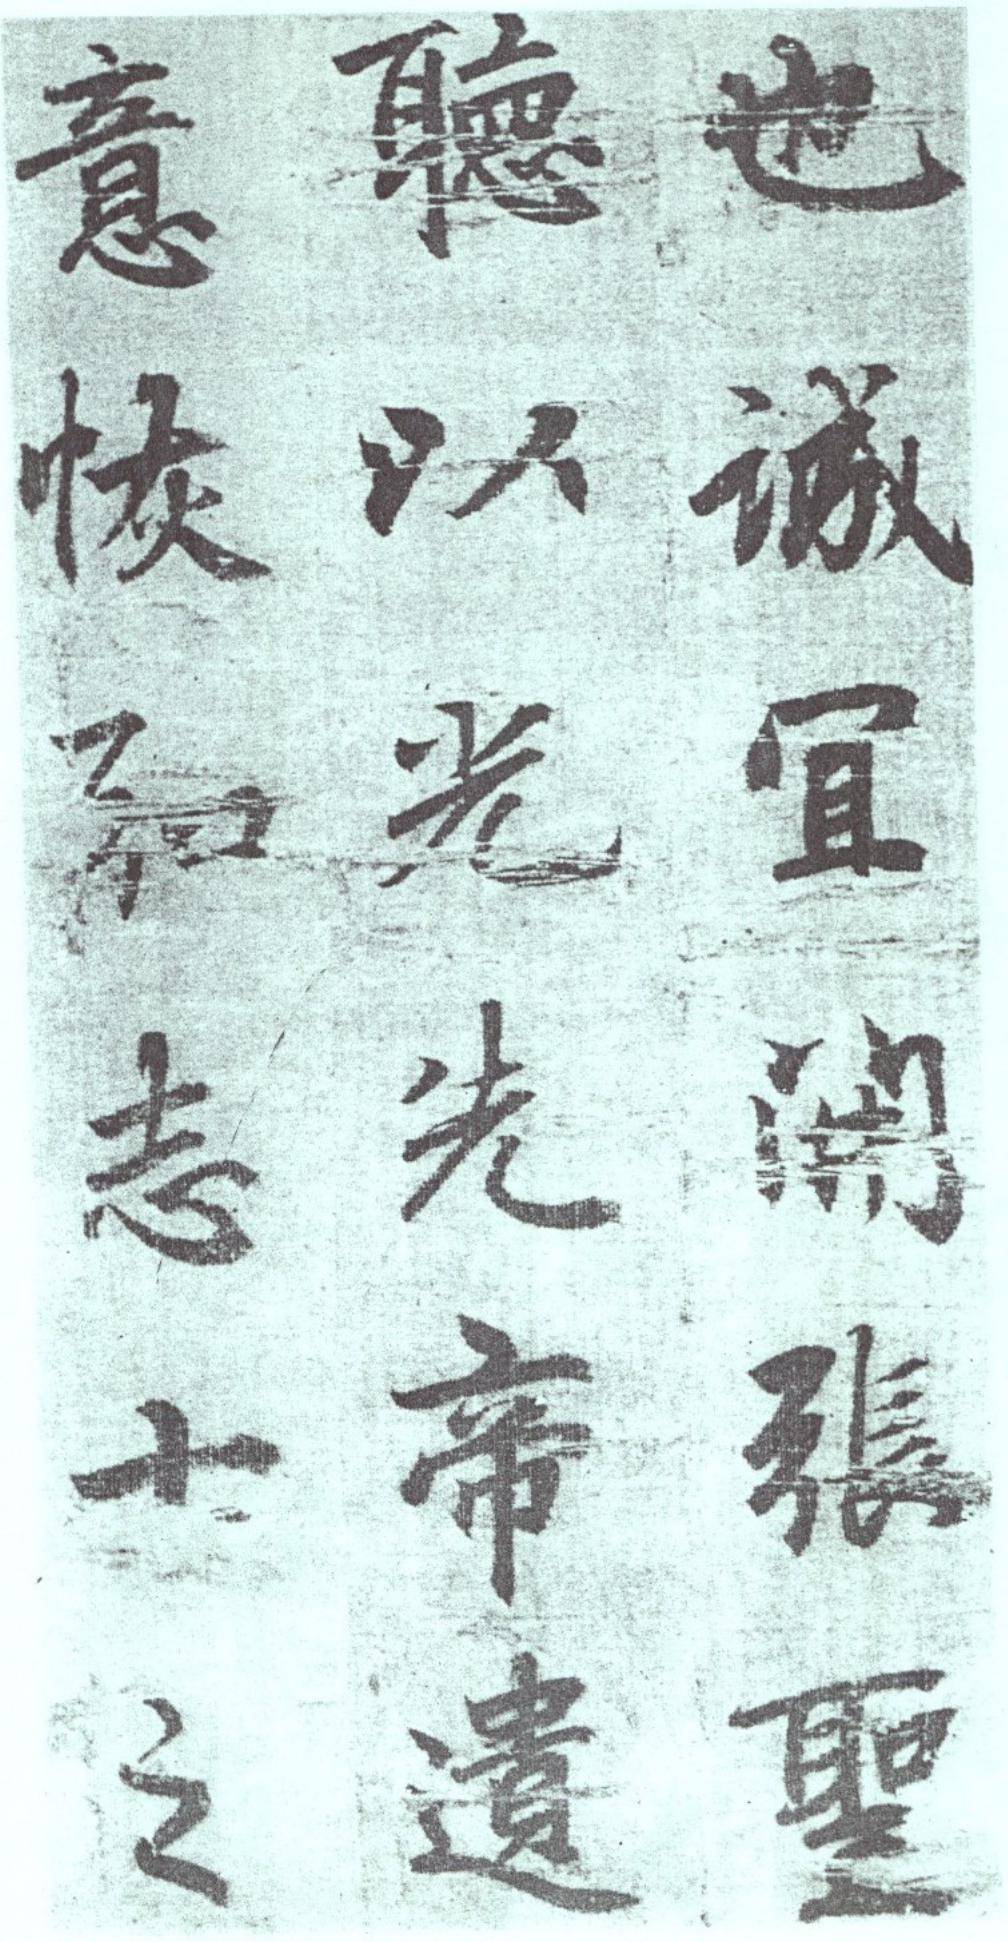 也誠宜開張聖
聽以光先帝遺
意恢志士之